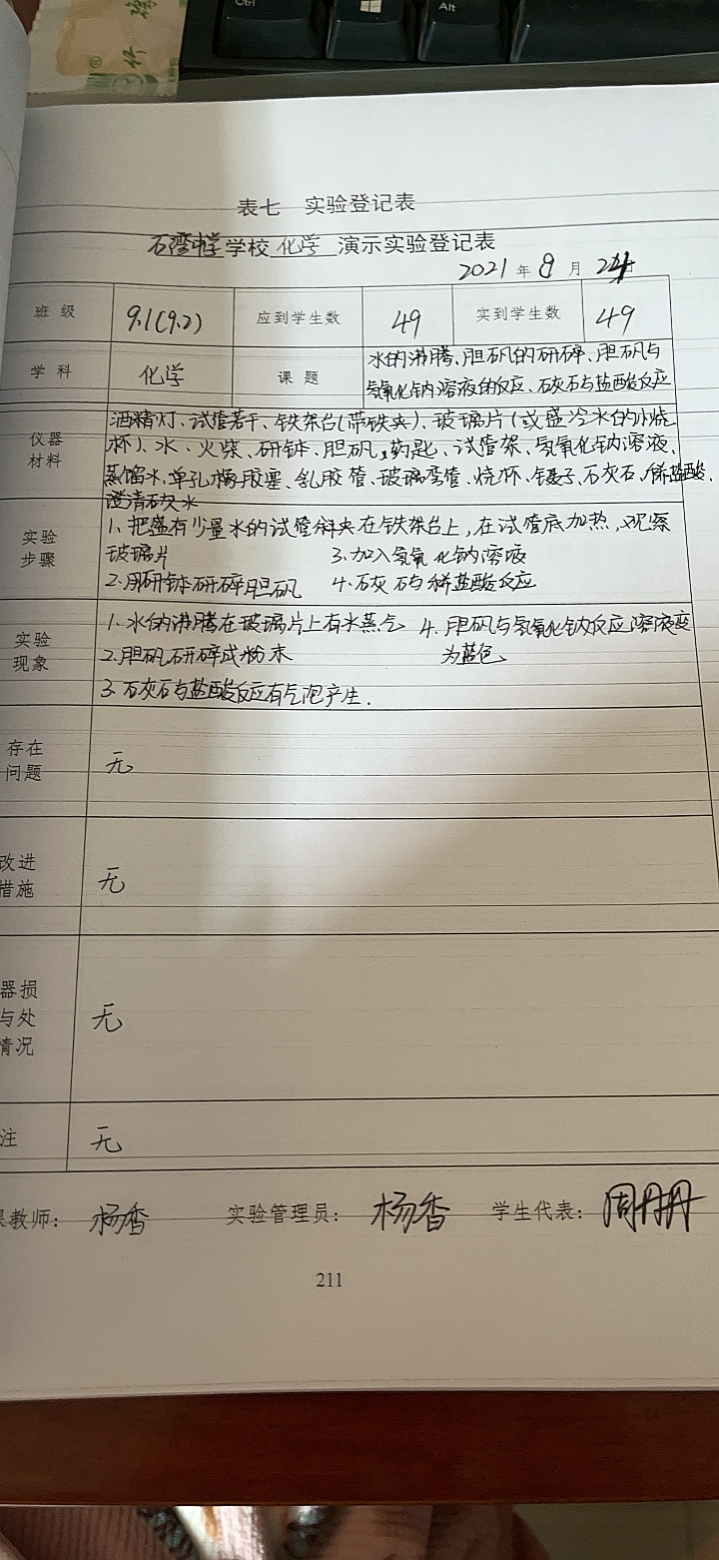 Ctrl
Alt
表七 实验登记表
石湾中学学校 化学 演示实验登记表
2021 年 9 月 24
班 级 9.1(9.2) 应到学生数 49 实到学生数 49
学 科 化学 课 题 水的沸腾、胆矾的研碎、胆矾与
氢氧化钠溶液的反应、石灰石与盐酸反应
仪器
材料
酒精灯、试管若干、铁架台(带铁夹)、玻璃片(或盛冷水的小烧
杯)、水、火柴、研钵、胆矾、药匙、试管架、氢氧化钠溶液、
蒸馏水、单孔橡胶塞、乳胶管、玻璃弯管、烧杯、镊子、石灰石、稀盐酸、
澄清石灰水
实验
步骤
1、把盛有少量水的试管斜夹在铁架台上,在试管底加热,观察
玻璃片 3.加入氢氧化钠溶液
2.用研钵研碎胆矾 4.石灰石与稀盐酸反应
实验
现象
1、水的沸腾在玻璃片上有水蒸气 4.胆矾与氢氧化钠反应溶液变
2.胆矾研碎成粉末 为蓝色
3.石灰石与盐酸反应有气泡产生.
存在
问题
无
改进
措施
无
器损
与处
情况
无
注 无
课教师: 杨香 实验管理员: 杨香 学生代表: 周丹丹
211